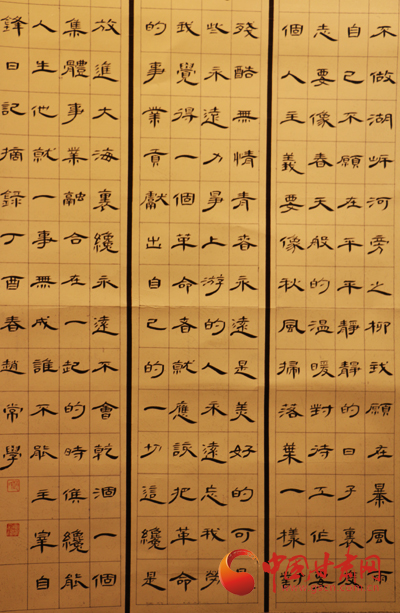 不做湖畔河旁之柳我願在暴風雨
自己不願在平平靜靜的日子裏度
志要像春天般的溫暖對待工作要
個人主義要像秋風掃落葉一樣對
殘酷無情青春永遠是美好的可是
些永遠力爭上游的人永遠忘我勞
我覺得一個革命者就應該把革命
的事業貢獻出自己的一切這纔是
放進大海裏纔永遠不會乾涸一個
集體事業融合在一起的時候纔能
人生他就一事無成誰不能主宰自
鋒日記摘錄丁酉春趙常學
中国甘肃网